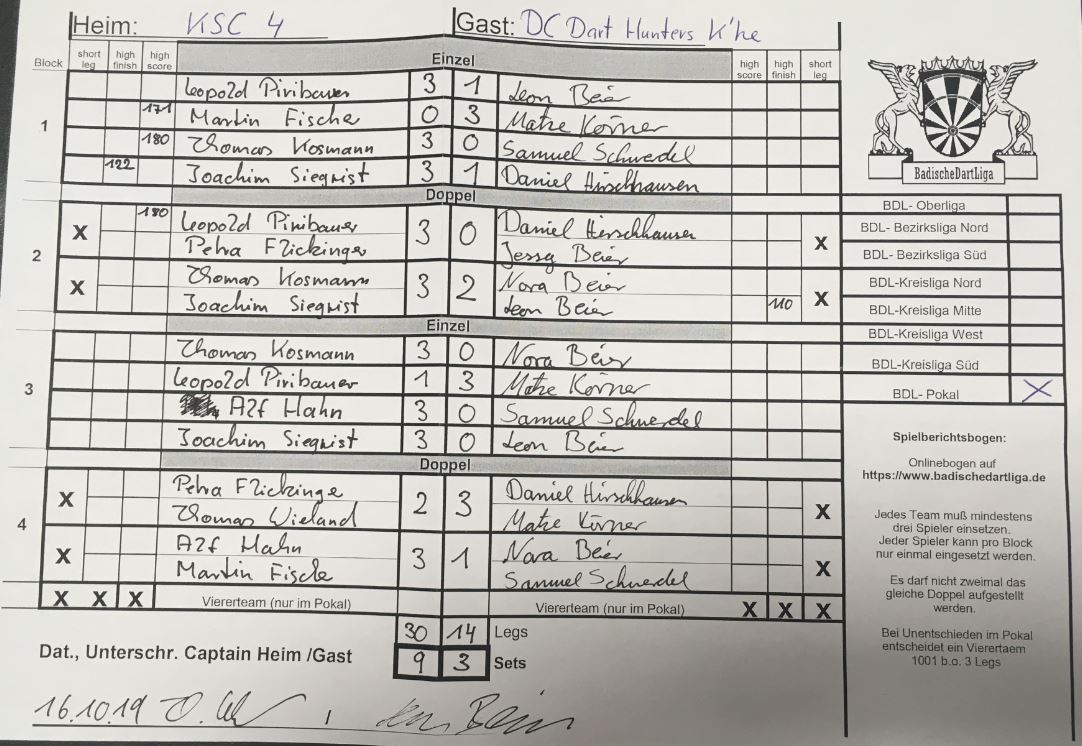 Heim: KSC 4 Gast: DC Dart Hunters K'he
Block short leg high finish high score Einzel high score high finish short leg
Leopold Piribauer 3 1 Leon Beier
1 171 Martin Fische 0 3 Matze Körner
180 Thomas Kosmann 3 0 Samuel Schwedel
122 Joachim Siegrist 3 1 Daniel Hirschhausen
Doppel
2 X 180 Leopold Piribauer 3 0 Daniel Hirschhausen X
Petra Flickinger Jessy Beier
X Thomas Kosmann 3 2 Nora Beier X
Joachim Siegrist Leon Beier 110
Einzel
3 Thomas Kosmann 3 0 Nora Beier
Leopold Piribauer 1 3 Matze Körner
Alf Hahn 3 0 Samuel Schwedel
Joachim Siegrist 3 0 Leon Beier
Doppel
4 X Petra Flickinge 2 3 Daniel Hirschhausen X
Thomas Wieland Matze Körner
X Alf Hahn 3 1 Nora Beier X
Martin Fische Samuel Schwedel
X X X Viererteam (nur im Pokal) Viererteam (nur im Pokal) X X X
30 14 Legs
Dat., Unterschr. Captain Heim /Gast 9 3 Sets
16.10.19 Leon Beier
BadischeDartLiga
BDL- Oberliga
BDL- Bezirksliga Nord
BDL- Bezirksliga Süd
BDL-Kreisliga Nord
BDL-Kreisliga Mitte
BDL-Kreisliga West
BDL-Kreisliga Süd
BDL- Pokal X
Spielberichtsbogen:
Onlinebogen auf
https://www.badischedartliga.de
Jedes Team muß mindestens
drei Spieler einsetzen.
Jeder Spieler kann pro Block
nur einmal eingesetzt werden.
Es darf nicht zweimal das
gleiche Doppel aufgestellt
werden.
Bei Unentschieden im Pokal
entscheidet ein Vierertaem
1001 b.o. 3 Legs